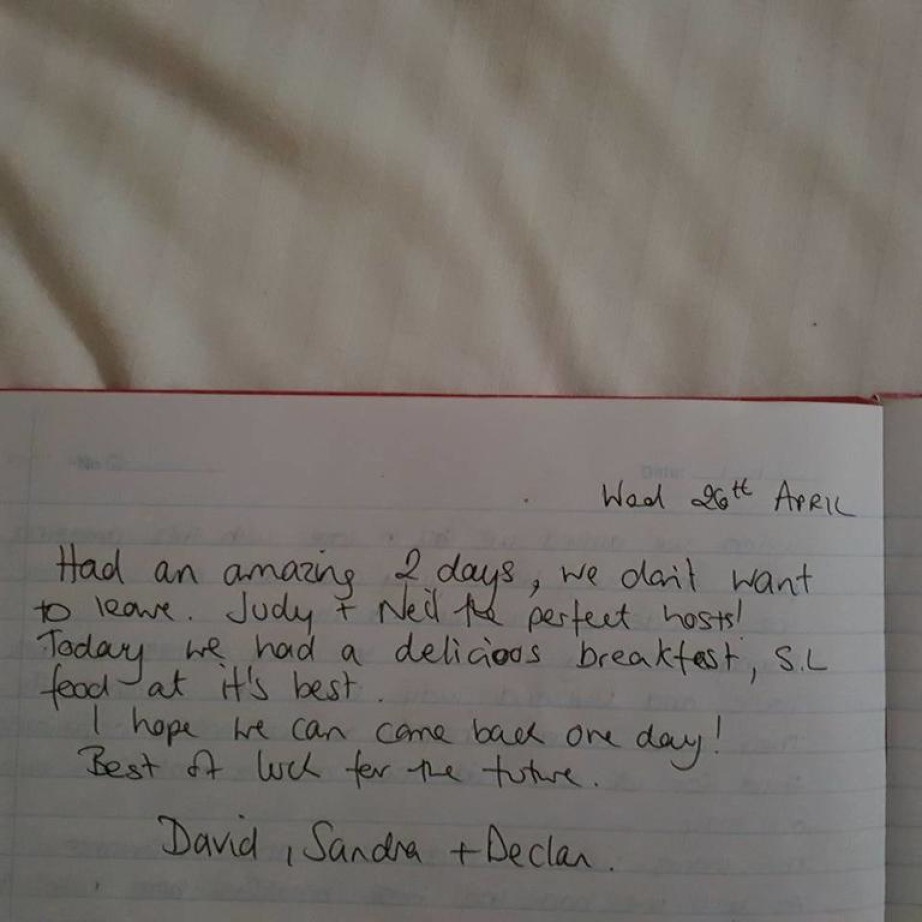 Wed 26th APRIL
Had an amazing 2 days, we don't want
to leave. Judy + Neil the perfect hosts!
Today we had a delicious breakfast, S.L
food at it's best.
I hope we can come back one day!
Best of luck for the future.
David, Sandra + Declan.